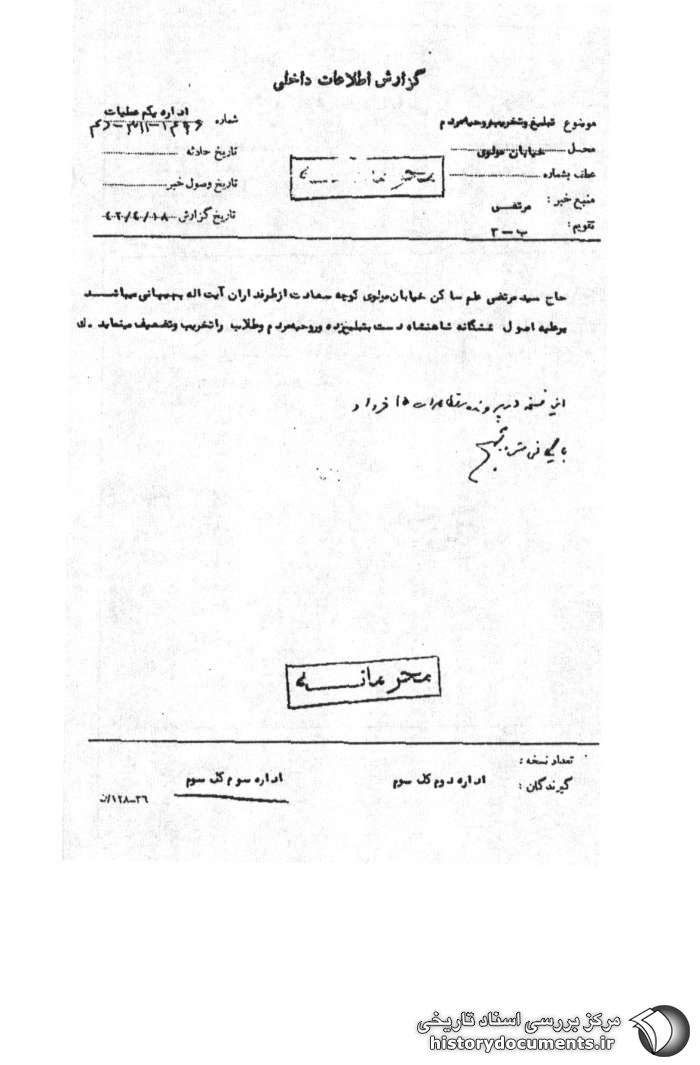 گزارش اطلاعات داخلی
موضوع تبلیغ وتخریب روحیه مردم
محل خیابان مولوی
عطف بشماره
منبع خبر : مرتضی
تقویم : ب – ۳
اداره یکم عملیات
شماره
تاریخ حادثه
تاریخ وصول خبر
تاریخ گزارش
محرمانه
حاج سید مرتضی علم ساکن خیابان مولوی کوچه سعادت ازطرفداران آیت اله بهبهانی میباشد
برعلیه اصول ششگانه شاهنشاه دست بتبلیغ زده وروحیه مردم وطلاب راتخریب وتضعیف مینماید .ك
در پرونده تظاهرات ۱۵ خرداد
محرمانه
تعداد نسخه :
گیرندگان : اداره دوم کل سوم اداره سوم کل سوم
۱۲۸–۳۶/ن
مرکز بررسی اسناد تاریخی
historydocuments.ir